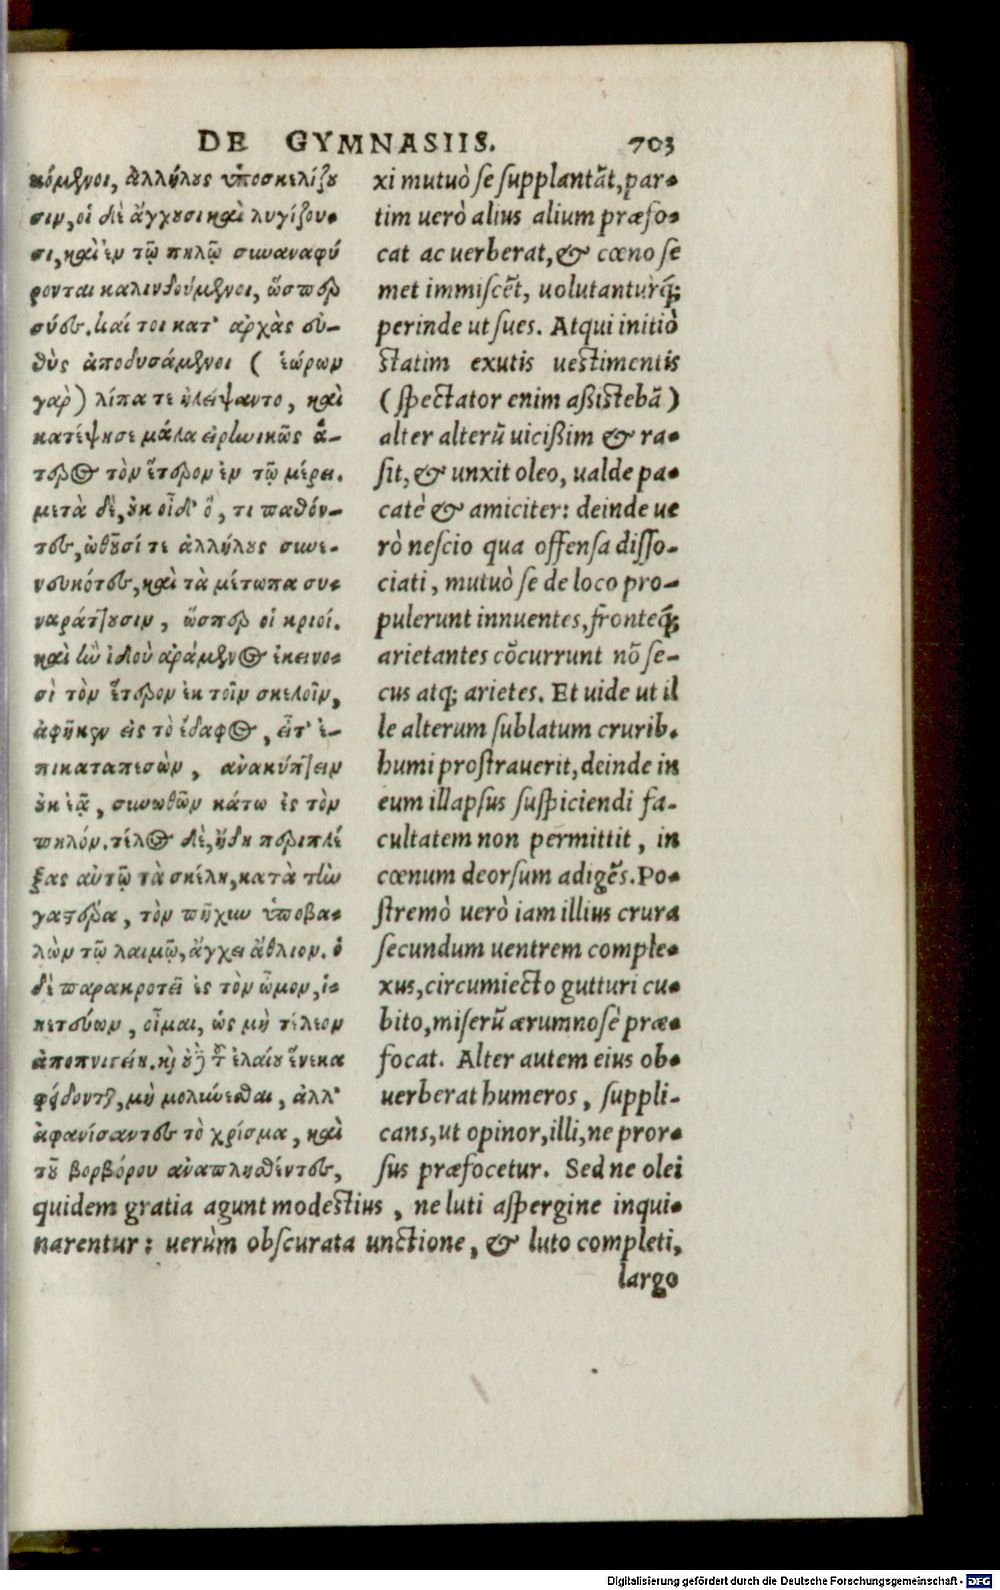 DE GYMNASIIS. 703
κόμενοι, ἀλλήλους ὑποσκελίζου
σιν, οἱ δὲ ἄγχουσι καὶ λυγίζου-
σι, καὶ ἐν τῷ πηλῷ συναναφύ
ρονται καλινδούμενοι, ὥσπερ
σύες. καί τοι κατ' ἀρχὰς εὐ-
θὺς ἀποδυσάμενοι ( ἑώρων
γαρ) λίπα τε ἠλείψαντο, καὶ
κατέψησε μάλα εἰρηνικῶς ἅ-
τερος τὸν ἕτερον ἐν τῷ μέρει.
μετὰ δὲ, οὐκ οἶδ' ὅ, τι παθόν-
τες, ὠθοῦσί τε ἀλλήλους συνε-
νευκότες, καὶ τὰ μέτωπα συν-
ναράττουσιν, ὥσπερ οἱ κριοί.
καὶ ἢν ἰδοὺ ἀράμενος ἐκεινο-
σὶ τὸν ἕτερον ἐκ τοῖν σκελοῖν,
ἀφῆκεν εἰς τὸ ἔδαφος, εἶτ' ἐ-
πικαταπεσὼν, ἀνακύπτειν
οὐκ ἐᾷ, συνωθῶν κάτω ἐς τὸν
πηλόν. τέλος δὲ, ἤδη περιπλέ
ξας αὐτῷ τὰ σκέλη, κατὰ τὴν
γαστέρα, τὸν πῆχυν ὑποβα-
λὼν τῷ λαιμῷ, ἄγχει ἄθλιον. ὁ
δὲ παρακροτεῖ ἐς τὸν ὦμον, ἱ-
κετεύων, οἶμαι, ὡς μὴ τέλεον
ἀποπνιγείη. καὶ οὐδὲ τοῦ ἐλαίου ἕνεκα
φείδονται, μὴ μολύνεσθαι, ἀλλ'
ἀφανίσαντες τὸ χρίσμα, καὶ
τοῦ βορβόρου ἀναπλησθέντες,
xi mutuò se supplantāt, par-
tim uerò alius alium præfo-
cat ac uerberat, & cœno se
met immiscēt, uolutanturq́;
perinde ut sues. Atqui initiò
statim exutis uestimentis
(spectator enim aßistebā)
alter alterū uicißim & ra-
sit, & unxit oleo, ualde pa-
catè & amiciter: deinde ue
rò nescio qua offensa disso-
ciati, mutuò se de loco pro-
pulerunt innuentes, fronteq́;
arietantes cōcurrunt nō se-
cus atq; arietes. Et uide ut il
le alterum sublatum crurib.
humi prostrauerit, deinde in
eum illapsus suspiciendi fa-
cultatem non permittit, in
cœnum deorsum adigēs. Po-
stremò uerò iam illius crura
secundum uentrem comple-
xus, circumiecto gutturi cu-
bito, miserū ærumnosè præ-
focat. Alter autem eius ob-
uerberat humeros, suppli-
cans, ut opinor, illi, ne pror-
sus præfocetur. Sed ne olei
quidem gratia agunt modestius, ne luti aspergine inqui-
narentur: uerùm obscurata unctione, & luto completi,
largo
Digitalisierung gefördert durch die Deutsche Forschungsgemeinschaft - DFG